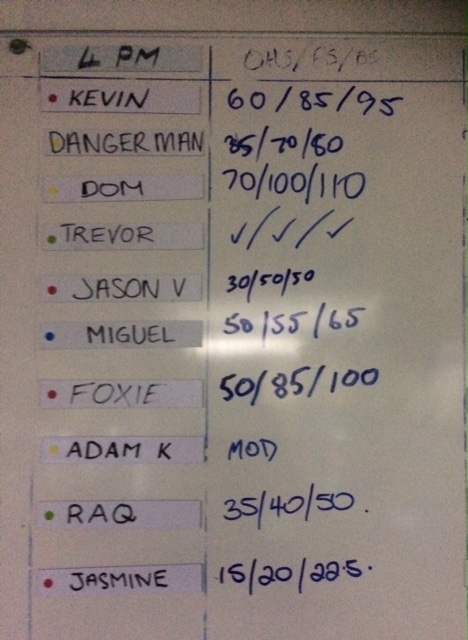 4 PM OHS/FS/BS
KEVIN 60/85/95
DANGERMAN 35/70/80
DOM 70/100/110
TREVOR ✓/✓/✓
JASON V 30/50/50
MIGUEL 50/55/65
FOXIE 50/85/100
ADAM K MOD
RAQ 35/40/50.
JASMINE 15/20/22.5.